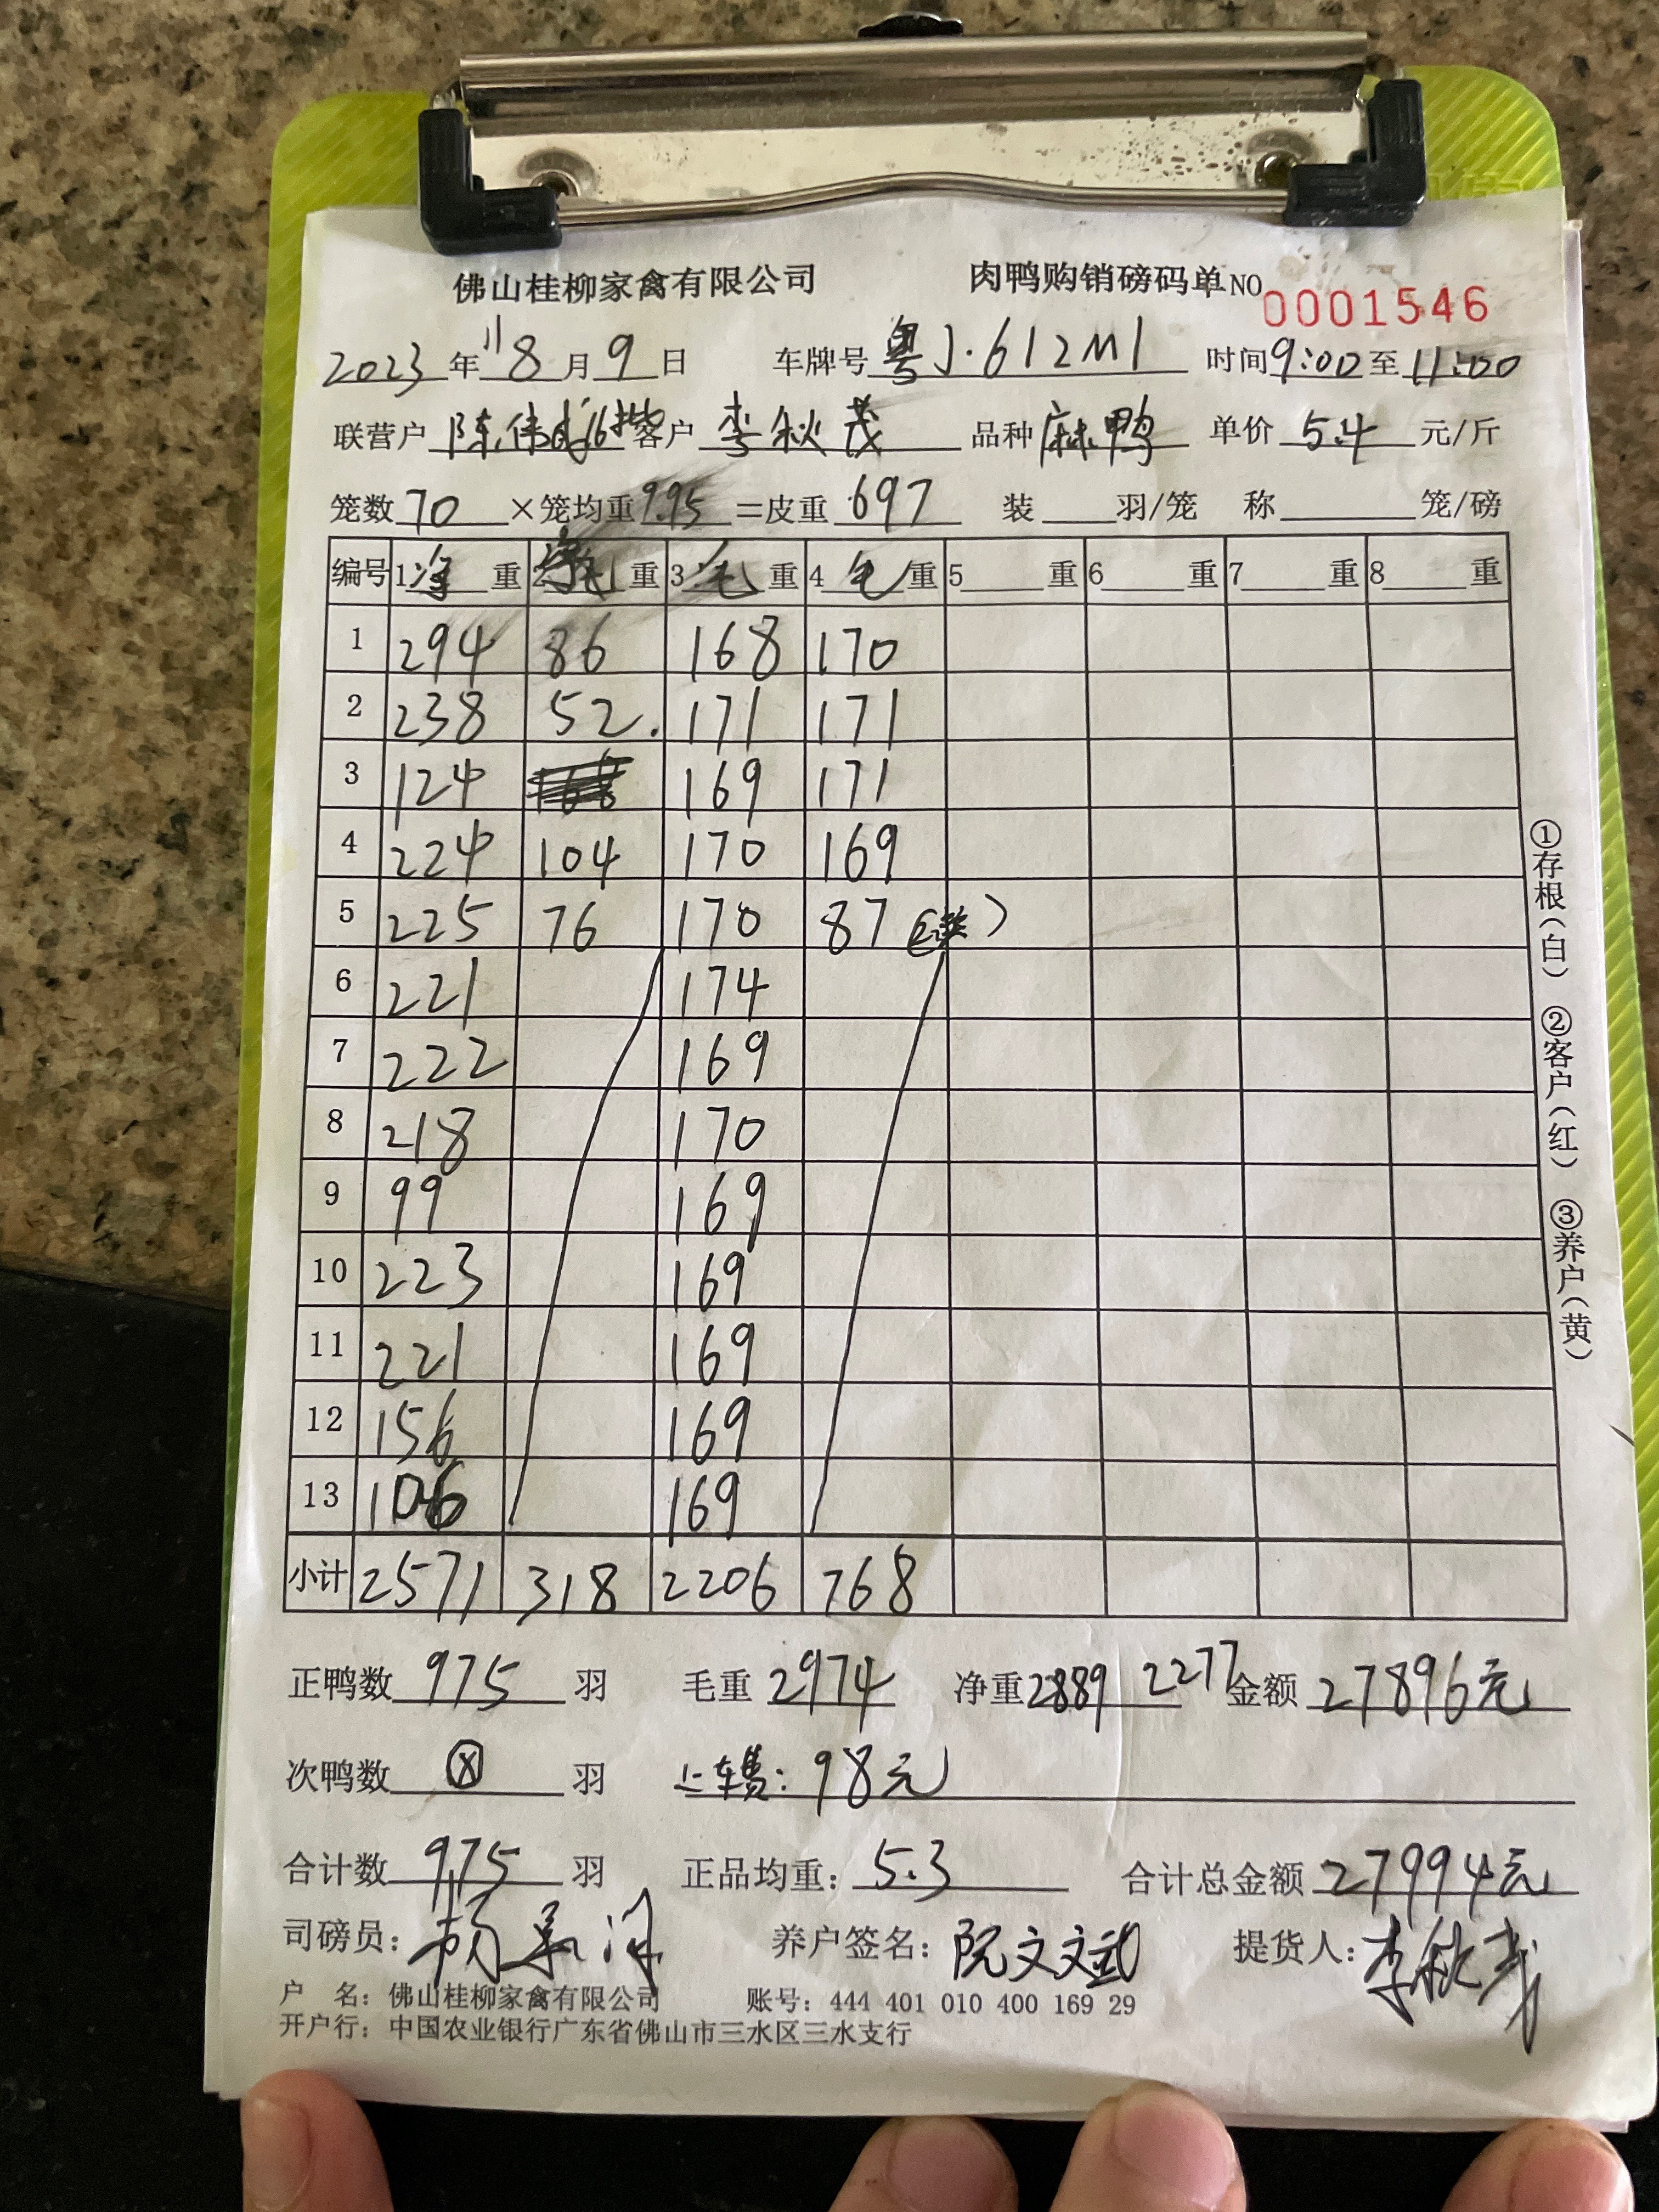 佛山桂柳家禽有限公司 肉鸭购销磅码单NO 0001546
2023年 8月9日 车牌号 粤J·612M1 时间9:00至11:00
联营户 陈伟 客户 李秋茂 品种 麻鸭 单价 5.4 元/斤
笼数70 ×笼均重9.95 =皮重 697 装 羽/笼 称 笼/磅
编号 1净重 2 重 3毛重 4毛重 5 重 6 重 7 重 8 重
1 294 86 168 170
2 238 52. 171 171
3 124 169 171
4 224 104 170 169
5 225 76 170 87
6 221 174
7 222 169
8 218 170
9 99 169
10 223 169
11 221 169
12 156 169
13 106 169
小计 2571 318 2206 768
正鸭数 975 羽 毛重 2974 净重2889 2277 金额 27896元
次鸭数 羽 上车费：98元
合计数 975 羽 正品均重：5.3 合计总金额 27994元
司磅员：杨 养户签名：阮文武 提货人：李秋茂
户 名：佛山桂柳家禽有限公司 账号：444 401 010 400 169 29
开户行：中国农业银行广东省佛山市三水区三水支行
①存根(白) ②客户(红) ③养户(黄)